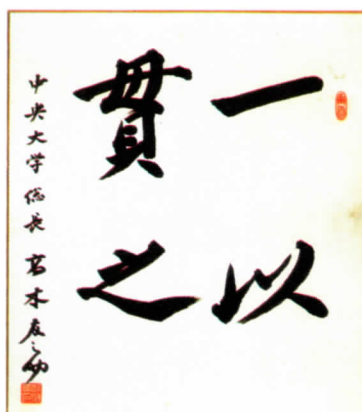 一以
貫之
中央大学総長 高木友之助